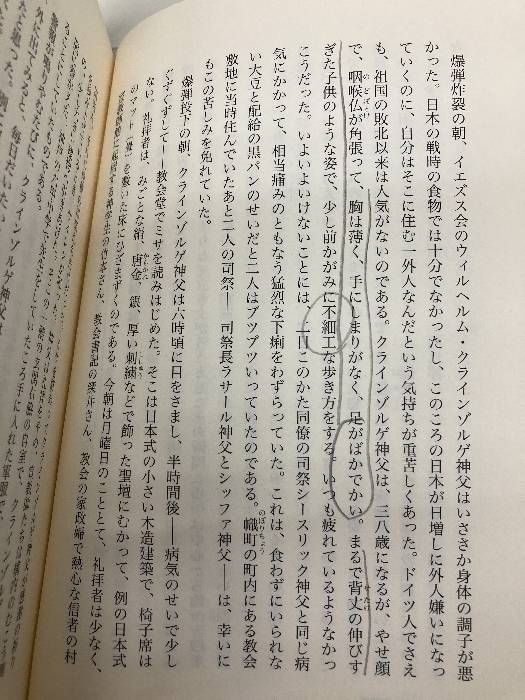 爆弾炸裂の朝、イエズス会のウィルヘルム・クラインゾルゲ神父はいささか身体の調子が悪
かった。日本の戦時の食物では十分でなかったし、このころの日本が日増しに外人嫌いになっ
ていくのに、自分はそこに住む一外人なんだという気持ちが重苦しくあった。ドイツ人でさえ
も、祖国の敗北以来は人気がないのである。クラインゾルゲ神父は、三八歳になるが、やせ顔
で、咽喉仏が角張って、胸は薄く、手にしまりがなく、足がばかでかい。まるで背丈の伸びす
ぎた子供のような姿で、少し前かがみに不細工な歩き方をする。いつも疲れているようなかっ
こうだった。いよいよいけないことには、二日このかた同僚の司祭シースリック神父と同じ病
気にかかって、相当痛みのともなう猛烈な下痢をわずらっていた。これは、食わずにいられな
い大豆と配給の黒パンのせいだと二人はブツブツいっていたのである。幟町の町内にある教会
敷地に当時住んでいたあと二人の司祭――司祭長ラサール神父とシッファ神父――は、幸いに
もこの苦しみを免れていた。
爆弾投下の朝、クラインゾルゲ神父は六時頃に目をさまし、半時間後――病気のせいで少し
ぐずぐずして――教会堂でミサを読みはじめた。そこは日本式の小さい木造建築で、椅子席は
ない。礼拝者は、みごとな絹、唐金、銀、厚い刺繍などで飾った聖壇にむかって、例の日本式
のマット（畳）を敷いた床にひざまずくのである。今朝は月曜日のこととて、礼拝者は少なく、
教会書記の深井さん、教会の家政婦で熱心な信者の村